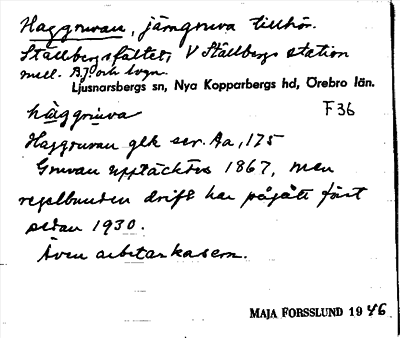 Haggruvan, järngruva tillhör.
Ställbergsfältet, V Ställbergs station
mell. A.J och
Ljusnarsbergs sn, Nya Kopparbergs hd, Örebro län.
hàggrùva F36
Haggruvan gek ser. Aa, 175
Gruvan upptäcktes 1867, men
regelbunden drift har pågått först
sedan 1930.
Även arbetarkasern.
MAJA FORSSLUND 1946